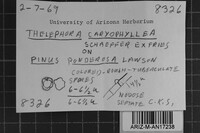 2-7-69
8326
University of Arizona Herbarium
THELEPHORA CARYOPHYLLEA
SCHAEFFER EX FRIES
ON
PINUS PONDEROSA LAWSON
COLORED-ROUGH-TUBERCULATE
SPORES
6-6½
6-6½
8326
HYPHAE
SEPTATE C.P.S.
ARIZ-M-AN17238